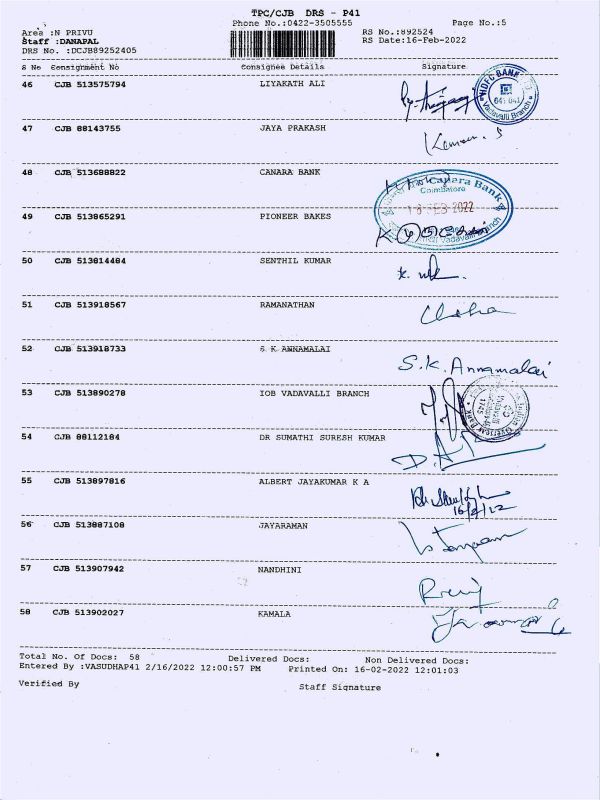 TPC/CJB DRS - P41
Phone No.:0422-3505555 Page No.:5
Area :N PRIVU RS No.:892524
Staff :DANAPAL RS Date:16-Feb-2022
DRS No. :DCJB89252405
S No Consignment No Consignee Details Signature
46 CJB 513575794 LIYAKATH ALI
HDFC BANK
Vadavalli Branch
47 CJB 88143755 JAYA PRAKASH
48 CJB 513688822 CANARA BANK
Canara Bank
Coimbatore
16 FEB 2022
49 CJB 513865291 PIONEER BAKES
Vadavalli Branch
50 CJB 513814484 SENTHIL KUMAR
51 CJB 513918567 RAMANATHAN
52 CJB 513918733 S K ANNAMALAI
S.K. Annamalai
53 CJB 513890278 IOB VADAVALLI BRANCH
Indian Overseas Bank
54 CJB 88112184 DR SUMATHI SURESH KUMAR
55 CJB 513897816 ALBERT JAYAKUMAR K A
16/2/22
56 CJB 513887108 JAYARAMAN
57 CJB 513907942 NANDHINI
58 CJB 513902027 KAMALA
Total No. Of Docs: 58 Delivered Docs: Non Delivered Docs:
Entered By :VASUDHAP41 2/16/2022 12:00:57 PM Printed On: 16-02-2022 12:01:03
Verified By Staff Signature